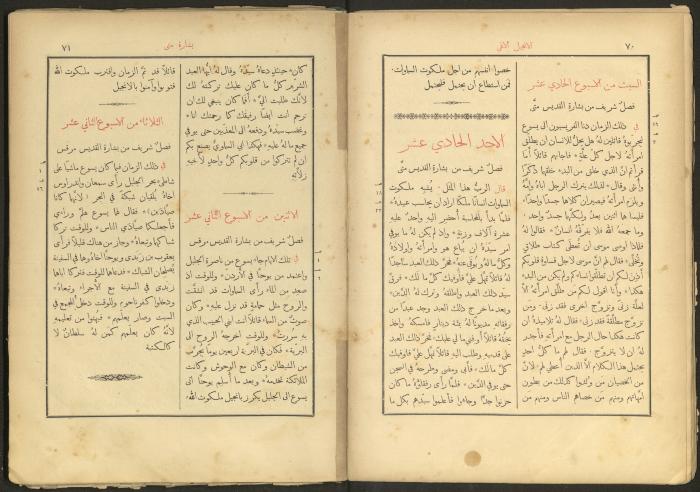 ٧٠
الانجيل الالهي
السبت من الاسبوع الحادي عشر
فصل شريف من بشارة القديس متى
في ذلك الزمان دنا الفريسيون الى يسوع
ليجربوهُ قائلين لهُ هل يحلُّ للانسان ان يطلق
امرأتهُ لاجل كلّ علَّةٍ* فاجابهم قائلاً أَما
قرأتم انَّ الذي خلق من البدءِ خلقهما ذكرًا
وأُنثى وقال* لذلك يترك الرجل اباهُ وأُمَّهُ
ويلزم امرأتهُ فيصيران كلاهما جسدًا واحدًا*
فليسا هما اثنين بعدُ ولكنَّهما جسدٌ واحد*
وما جمعهُ الله فلا يفرّقهُ انسانٌ* قالوا لهُ
فلماذا اوصى موسى ان تُعطَى كتاب طلاقٍ
وتُخلَّى* فقال لهم انَّ موسى لاجل قساوة قلوبكم
أَذِنَ لكم ان تطلّقوا نساءكم ولم يكن من البدءِ
هكذا* وأَنا اقول لكم من طلَّق امرأَتهُ الَّا
لعلَّة زنًى وتزوَّج أخرى فقد زنى* ومن
تزوَّج مطلَّقةً فقد زنى* فقال لهُ تلاميذهُ ان
كانت هكذا حال الرجل مع امرأتهِ فأجدر
لهُ ان لا يتزوَّج* فقال لهم ما كلُّ احدٍ
يحتمل هذا الكلام الَّا الذين أُعطي لهم* لانَّ
من الخصيان من وُلدوا كذلك من بطون
امهاتهم ومنهم من خصاهم الناس ومنهم من
خصوا انفسهم من اجل ملكوت السماوات*
فمن استطاع ان يحتمل فليحتمل
الاحد الحادي عشر
فصل شريف من بشارة القديس متى
قال الربُّ هذا المثل* يُشبه ملكوت
السماوات انسانًا ملكًا اراد ان يحاسب عبيدهُ*
فلمَّا بدأَ بالمحاسبة أُحضر اليهِ واحدٌ عليهِ
عشرة آلاف وزنةٍ* واذ لم يكن لهُ ما يوفي
امر سيدهُ ان يُباع هو وامرأتهُ واولادهُ
وكلُّ ما لهُ ويوفي عنهُ* فخرَّ ذلك العبد ساجدًا
لهُ قائلاً تمهَّل عليَّ فأوفيك كلَّ ما لك* فرقَّ
سيد ذلك العبد واطلقهُ وترك لهُ الدَّين*
وبعد ما خرج ذلك العبد وجد عبدًا من
رفقائهِ مديونًا لهُ بمئة دينار فامسكهُ واخذ
يخنقهُ قائلاً أوفني ما لي عليك* فخرَّ ذلك العبد
على قدميهِ وطلب اليهِ قائلاً تمهَّل عليَّ فأوفيك
كلَّ ما لك* فأبى ومضى وطرحهُ في السجن
حتى يوفي الدَّين* فلمَّا رأى رفقاؤُهُ ما كان
حزنوا جدًّا وجاءوا فأعلموا سيدهم بكل ما
٧١
بشارة متى
كان* حينئذٍ دعاهُ سيدهُ وقال لهُ ايُّها العبد
الشرير كلُّ ما كان عليك تركتهُ لك
لانَّك طلبت اليَّ* أَفما كان ينبغي لك ان
ترحم انت ايضًا رفيقك كما رحمتك انا*
وغضب سيدهُ ودفعهُ الى المعذّبين حتى يوفي
جميع ما لهُ عليهِ* فهكذا ابي السماويُّ يصنع بكم
ان لم تتركوا من قلوبكم كلُّ واحدٍ لاخيهِ
زلَّاتهِ
الاثنين من الاسبوع الثاني عشر
فصل شريف من بشارة القديس مرقس
في تلك الايام جاءَ يسوع من ناصرة الجليل
واعتمد من يوحنا في الاردن* وللوقت اذ
صعد من الماء رأى السماوات قد انشقَّت
والروح مثل حمامةٍ قد نزل عليهِ* وكان
صوتٌ من السماء قائلاً انت ابني الحبيب الذي
بهِ سُررت* وللوقت اخرجهُ الروح الى
البرية* فكان في البريَّة اربعين يومًا يُجرَّب
من الشيطان وكان مع الوحوش وكانت
الملائكة تخدمهُ* وبعد ما أُسلم يوحنا اتى
يسوع الى الجليل يكرز بانجيل ملكوت الله*
قائلاً قد تمَّ الزمان واقترب ملكوت الله
فتوبوا وآمنوا بالانجيل
الثلاثاء من الاسبوع الثاني عشر
فصل شريف من بشارة القديس مرقس
في ذلك الزمان فيما كان يسوع ماشيًا على
شاطئ بحر الجليل رأى سمعان واندراوس
اخاهُ يُلقيان شبكةً في البحر لانَّهما كانا
صيَّادَين* فقال لهما يسوع هلمَّ وراءي
فأجعلكما صيَّادَي الناس* وللوقت تركا
شباكهما وتبعاهُ* وجاز من هناك قليلاً فرأى
يعقوب بن زبدى ويوحنا اخاهُ وهما في السفينة
يُصلحان الشباك* فدعاهما للوقت فتركا اباهما
زبدى في السفينة مع الاجراء وتبعاهُ*
ودخلوا كفرناحوم وللوقت دخل المجمع في
السبت وصار يعلّمهم* فبُهتوا من تعليمهِ
لانَّهُ كان يعلّمهم كمن لهُ سلطانٌ لا
كالكتبة